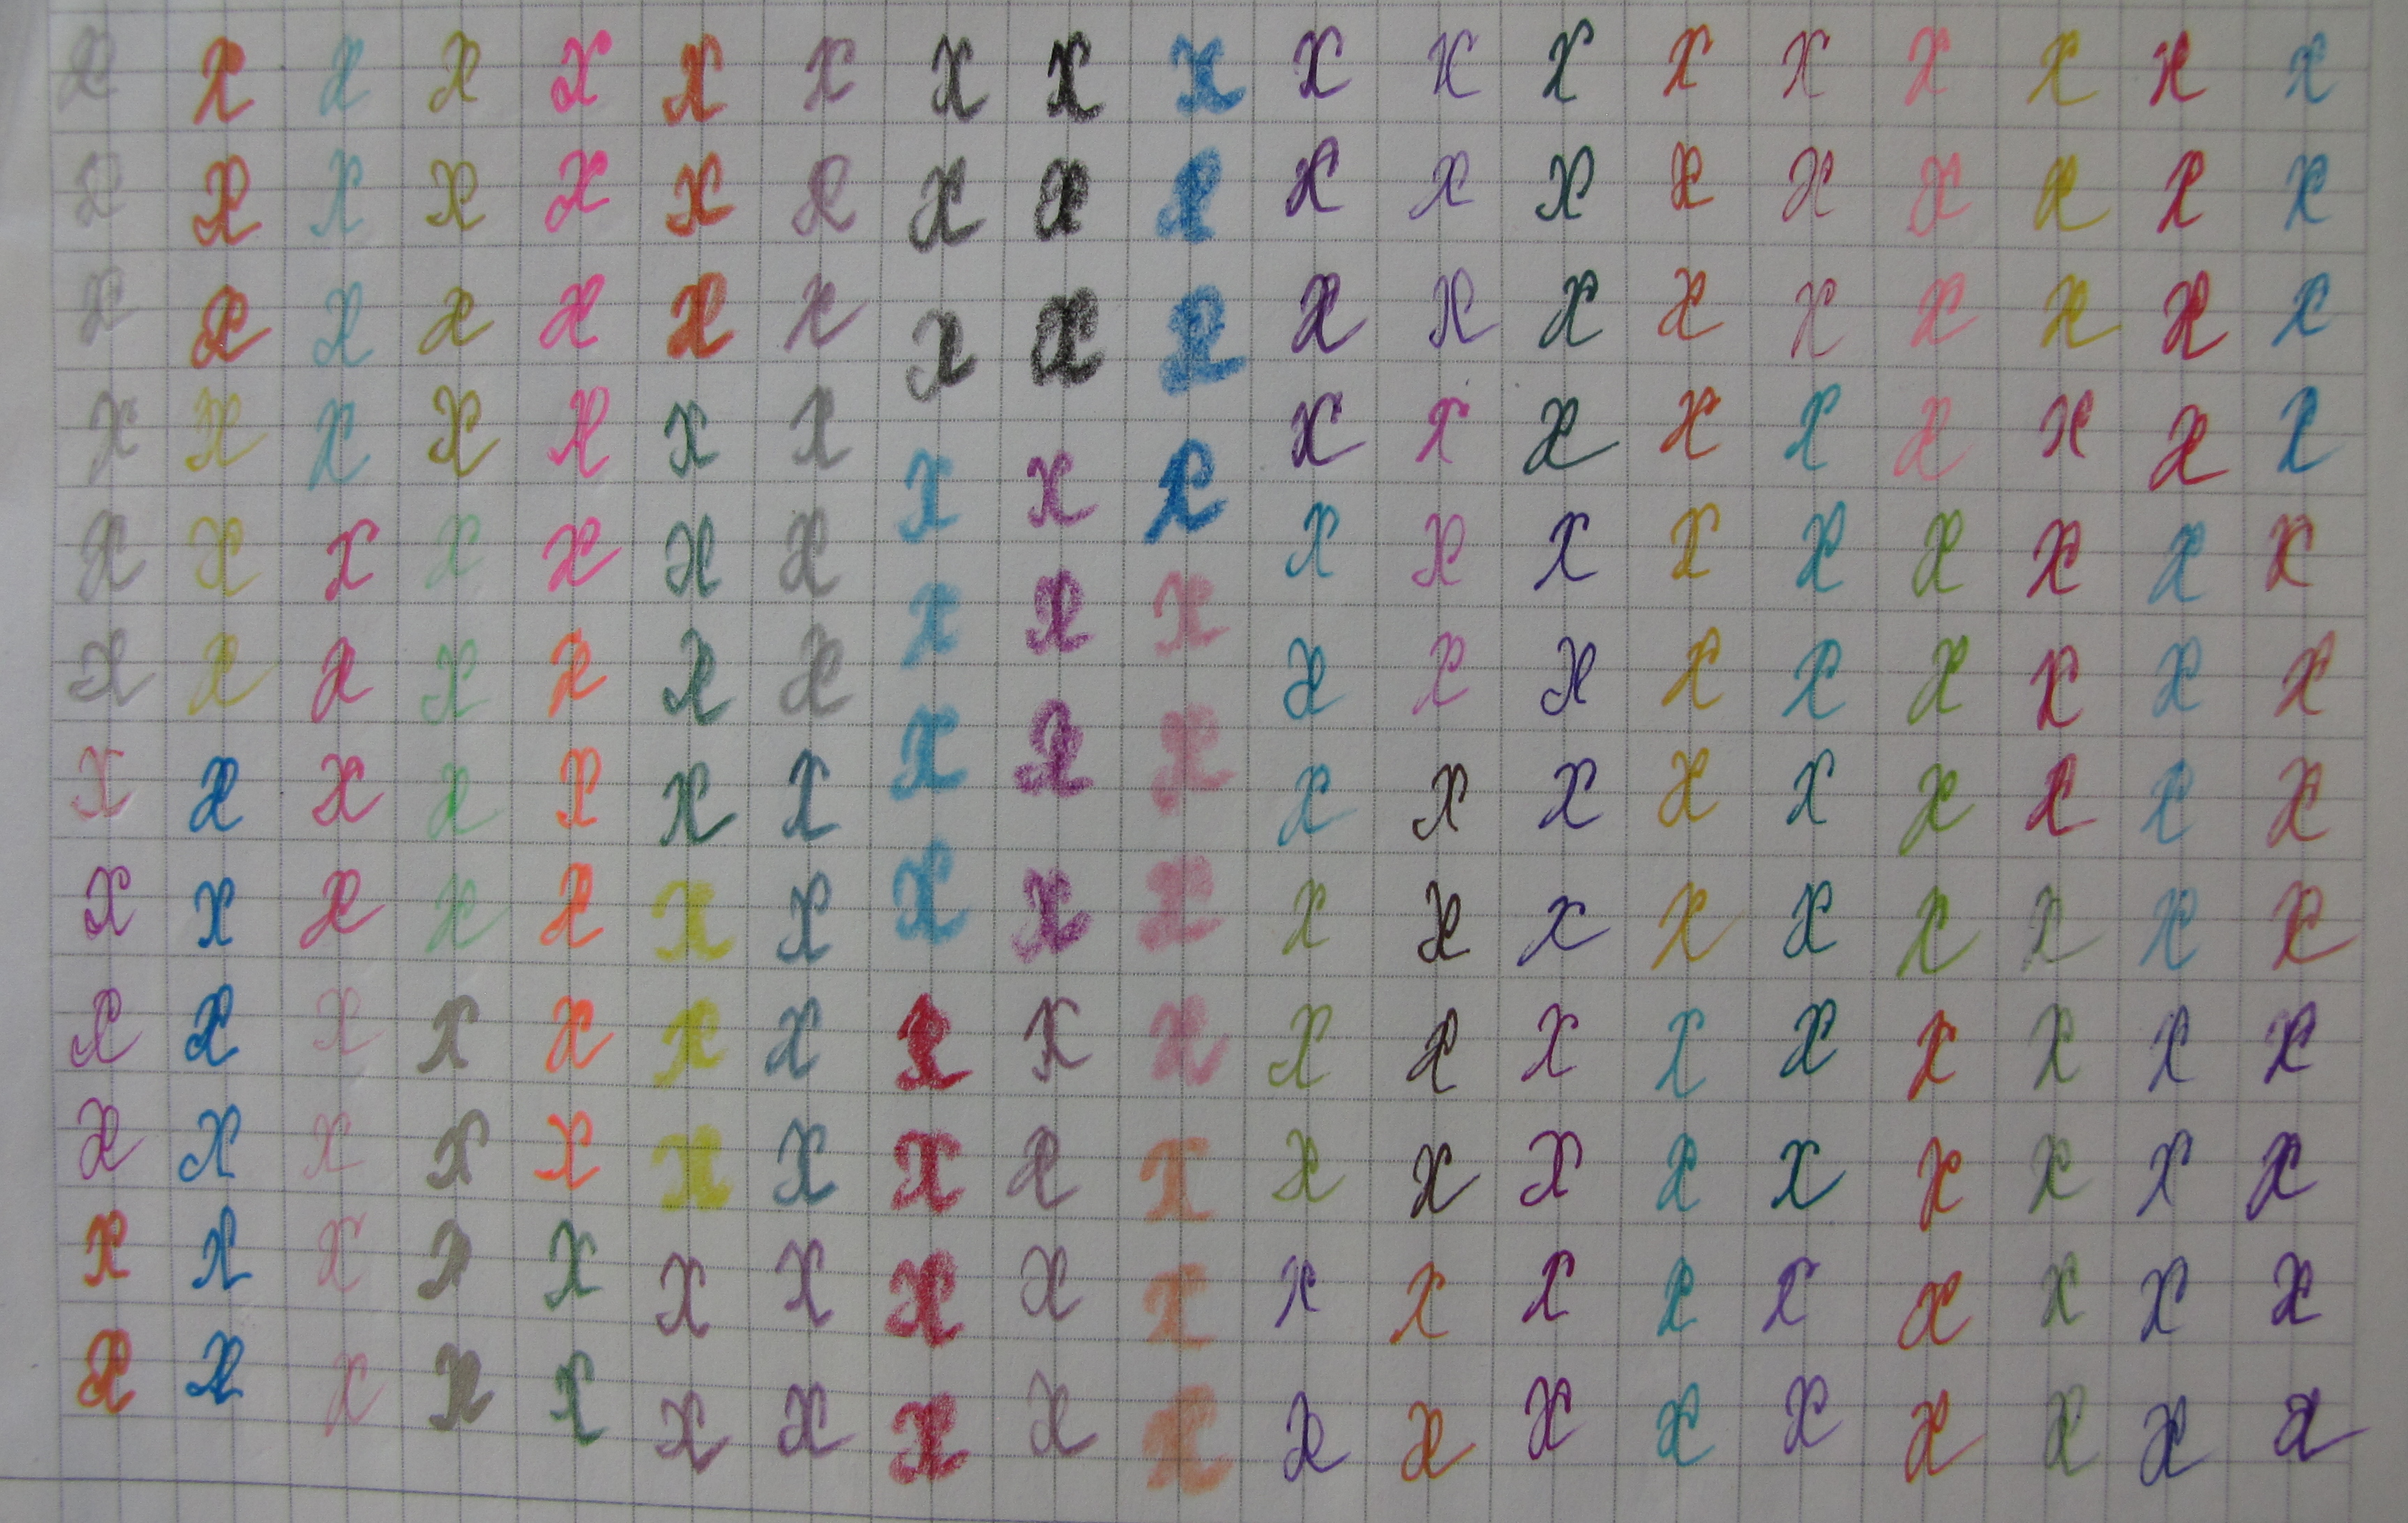 x x x x x x x x x x x x x x x x x x x
x x x x x x x x x x x x x x x x x x x
x x x x x x x x x x x x x x x x x x x
x x x x x x x x x x x x x x x x x x x
x x x x x x x x x x x x x x x x x x x
x x x x x x x x x x x x x x x x x x x
x x x x x x x x x x x x x x x x x x x
x x x x x x x x x x x x x x x x x x x
x x x x x x x x x x x x x x x x x x x
x x x x x x x x x x x x x x x x x x x
x x x x x x x x x x x x x x x x x x x
x x x x x x x x x x x x x x x x